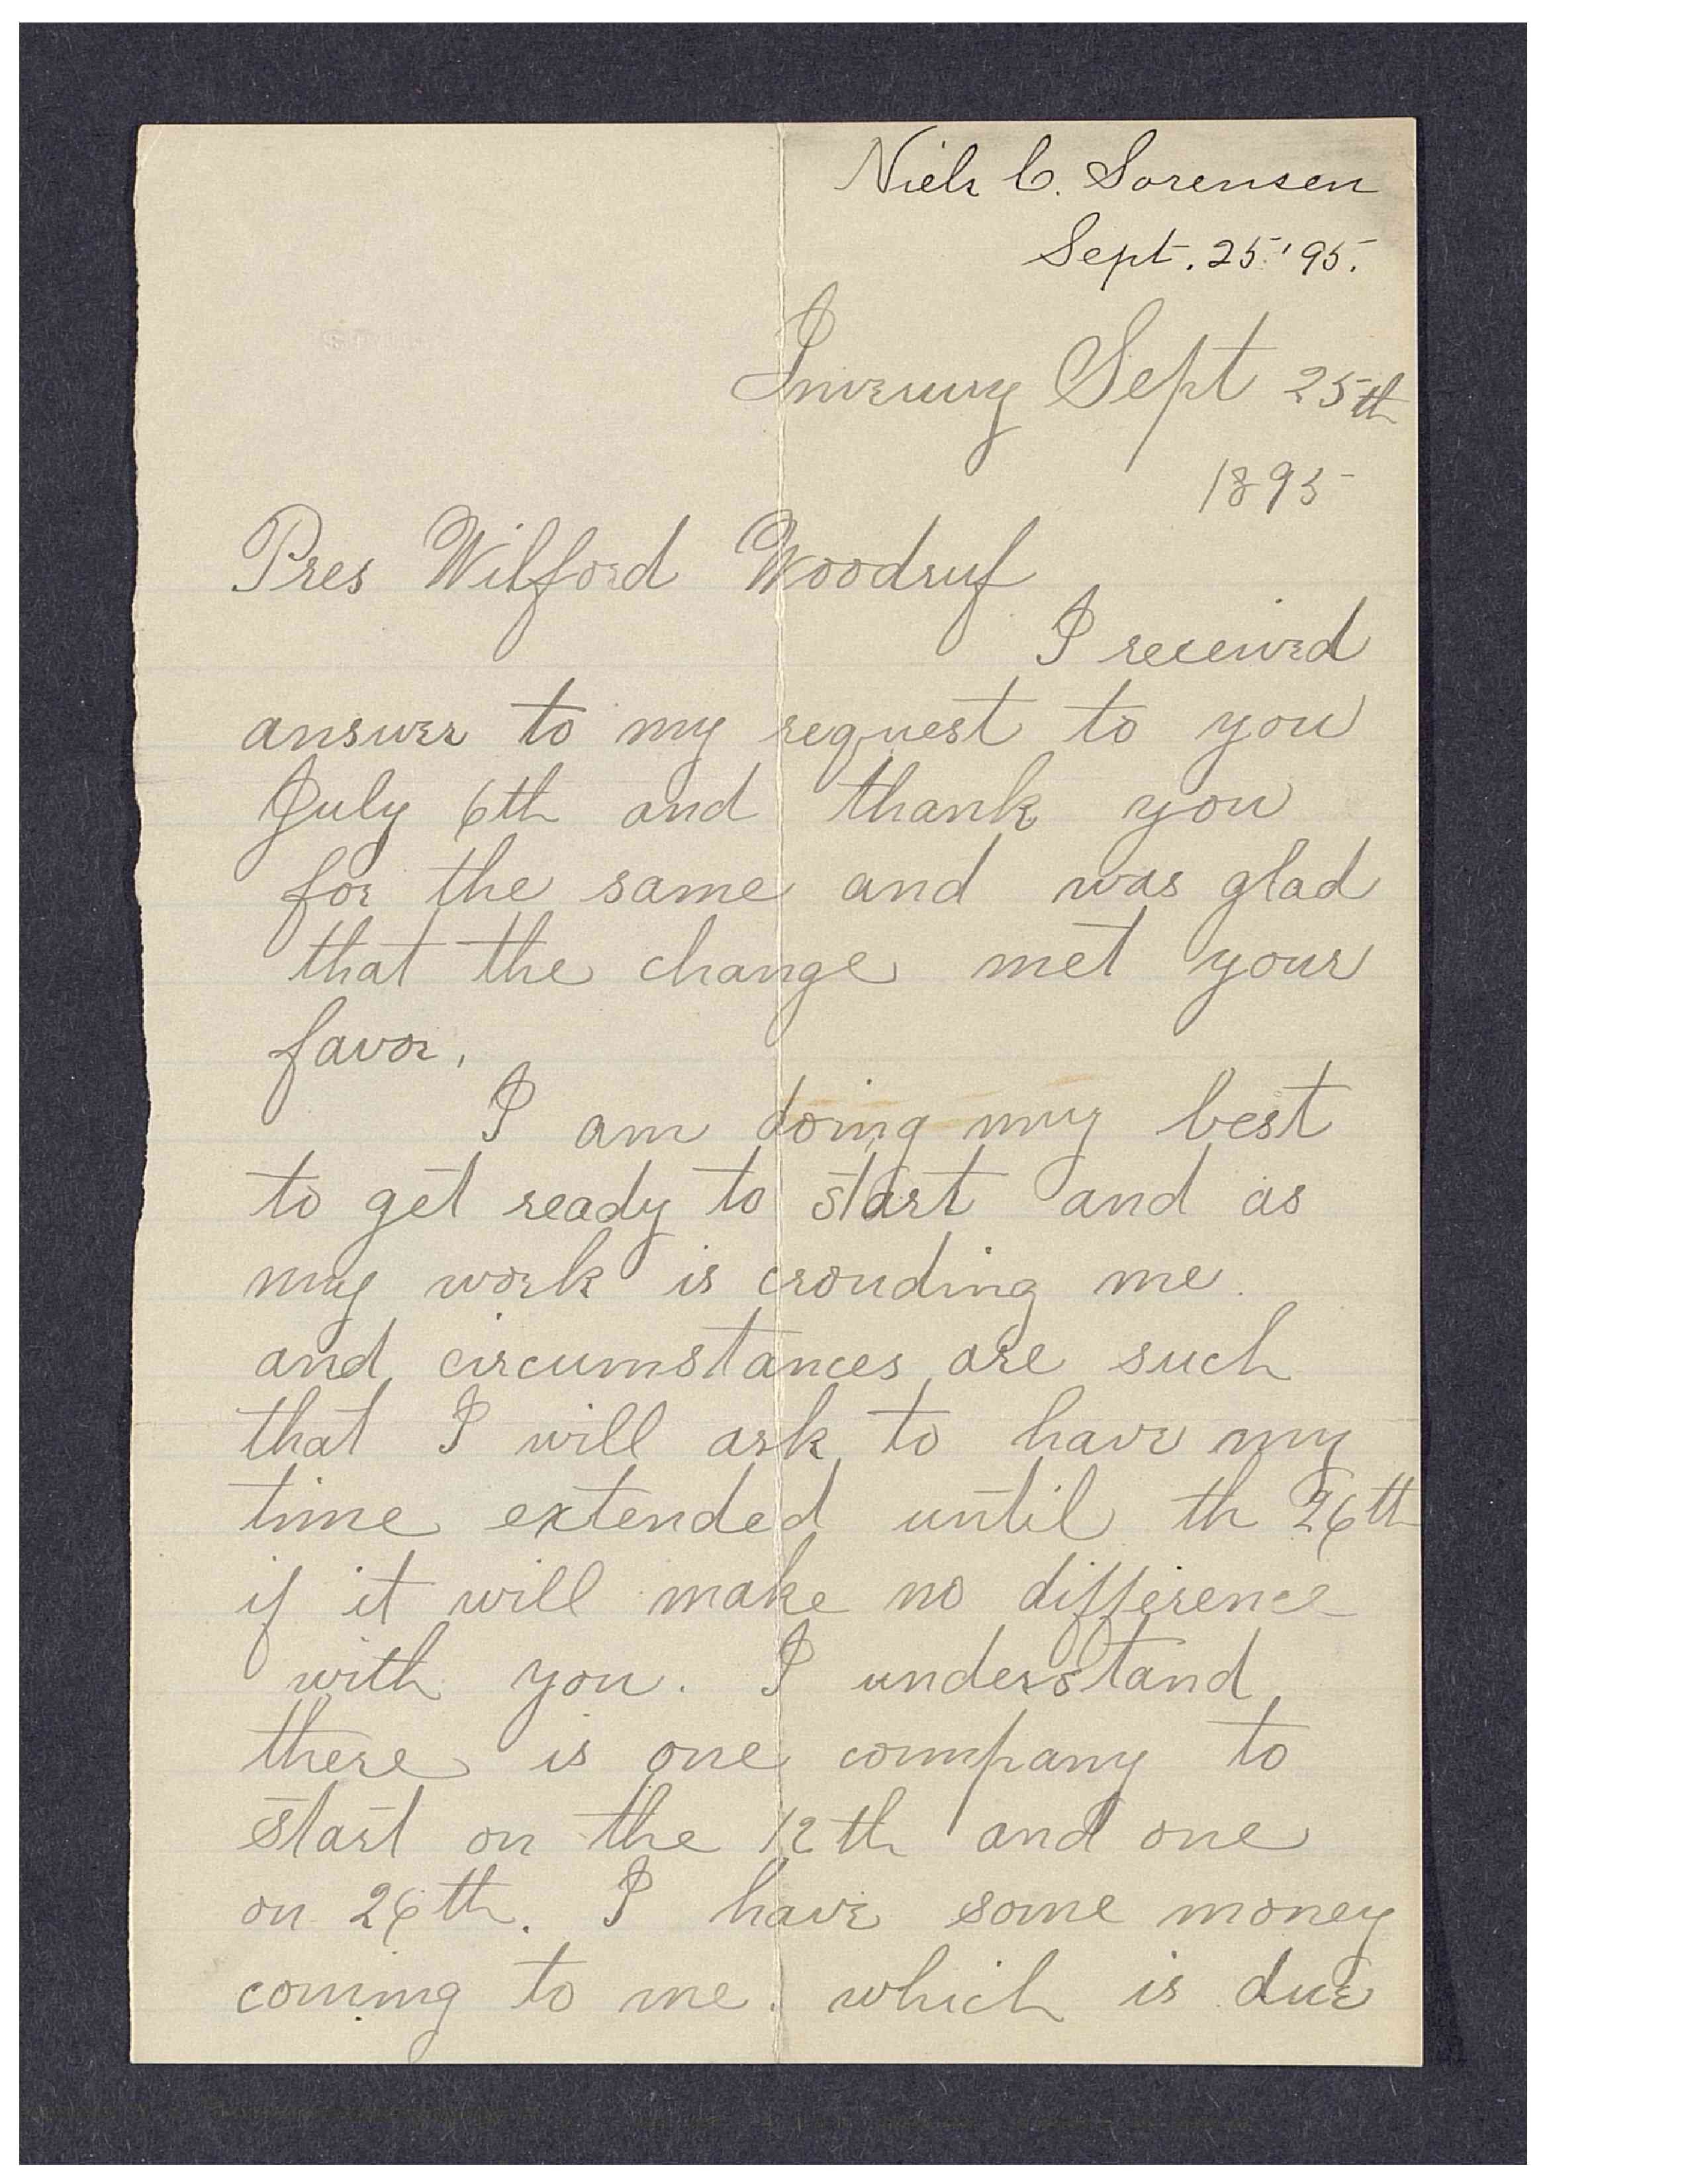 Niels C. Sorensen
Sept. 25. '95.
Inverury Sept 25th
1895
Pres Wilford Woodruf
I received
answer to my request to you
July 6th and thank you
for the same and was glad
that the change met your
favor.
I am doing my best
to get ready to start and as
my work is crouding me.
and circumstances are such
that I will ask to have my
time extended until th 26th
if it will make no difference
with you. I understand
there is one company to
start on the 12th and one
on 26th. I have some money
coming to me. which is due